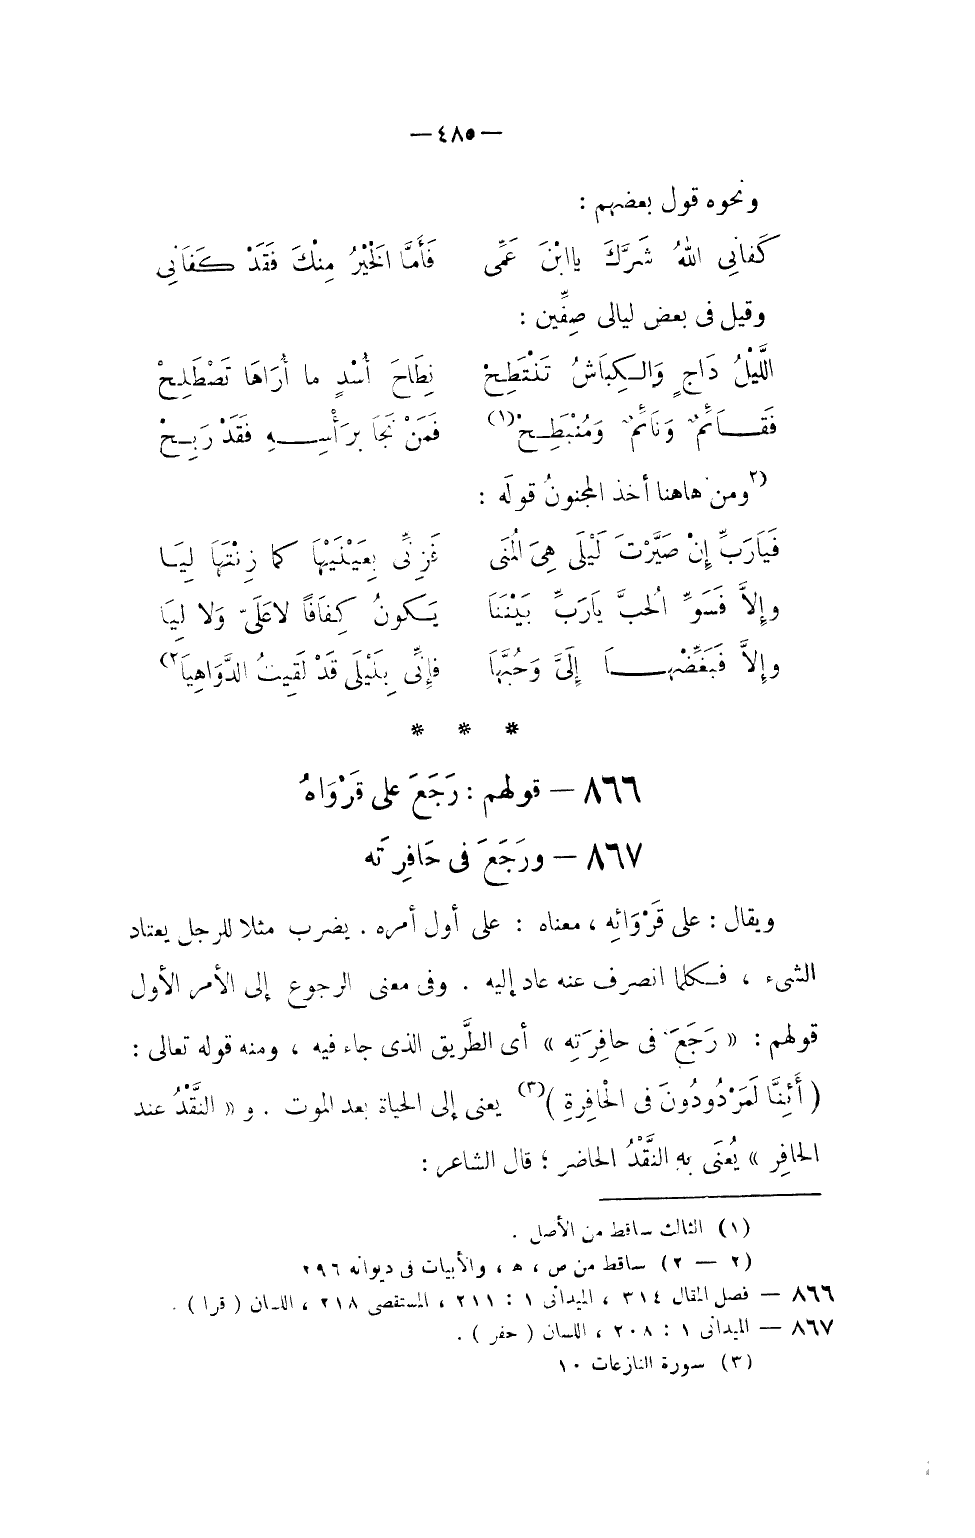 — ٤٨٥ —
ونحوه قول بعضهم :
كَفانِي اللهُ شَرَّكَ ياابْنَ عَمِّى فَأَمَّا الخَيْرُ مِنْكَ فَقَدْ كَفَانِي
وقيل فى بعض ليالى صِفِّين :
اللَّيْلُ دَاجٍ وَالكِبَاشُ تَنْتَطِحْ نِطَاحَ أُسْدٍ ما أُرَاهَا تَصْطَلِحْ
فَقَائَمٌ وَنَائَمٌ وَمُنْبَطِحْ(١) فَمَنْ نَجَا بِرَأْسِهِ فَقَدْ رَبِحْ
(٢ ومن هاهنا أخذ المجنونُ قولَه :
فَيَارَبِّ إنْ صَيَّرْتَ لَيْلَى هِيَ المُنَى فَزِنِّى بِعَيْنَيْهَا كما زِنْتَهَا لِيَا
وإلاَّ فَسَوِّ الحبَّ يارَبِّ بَيْنَنَا يَكونُ كِفَافًا لاعَلَىّ وَلا لِيَا
وإلاَّ فَبَغِّضْهَا إلَىَّ وَحُبَّهَا فإنِّى بِلَيْلَى قَدْ لَقِيتُ الدَّوَاهِيَا ٢)
* * *
٨٦٦ — قولهم : رَجَعَ على قَرْوَاهُ
٨٦٧ — ورَجَعَ فى حَافِرَته
ويقال : على قَرْوَائِه ، معناه : على أول أمره . يضرب مثلا للرجل يعتاد
الشىء ، فكلما انصرف عنه عاد إليه . وفى معنى الرجوع إلى الأمر الأول
قولهم : « رَجَعَ فى حافِرَتِه » أى الطَّريق الذى جاء فيه ، ومنه قوله تعالى :
( أَئِنَّا لَمَرْدُودُونَ فى الحَافِرةِ )(٣) يعنى إلى الحياة بعد الموت . و « النَّقْدُ عند
الحافِر » يُعنَى به النَّقْدُ الحاضر ؛ قال الشاعر :
(١) الثالث ساقط من الأصل .
(٢ — ٢) ساقط من ص ، ه ، والأبيات فى ديوانه ٢٩٦
٨٦٦ — فصل المقال ٣١٤ ، الميدانى ١ : ٢١١ ، المستقصى ٢١٨ ، اللسان ( قرا ) .
٨٦٧ — الميدانى ١ : ٢٠٨ ، اللسان ( حفر ) .
(٣) سورة النازعات ١٠